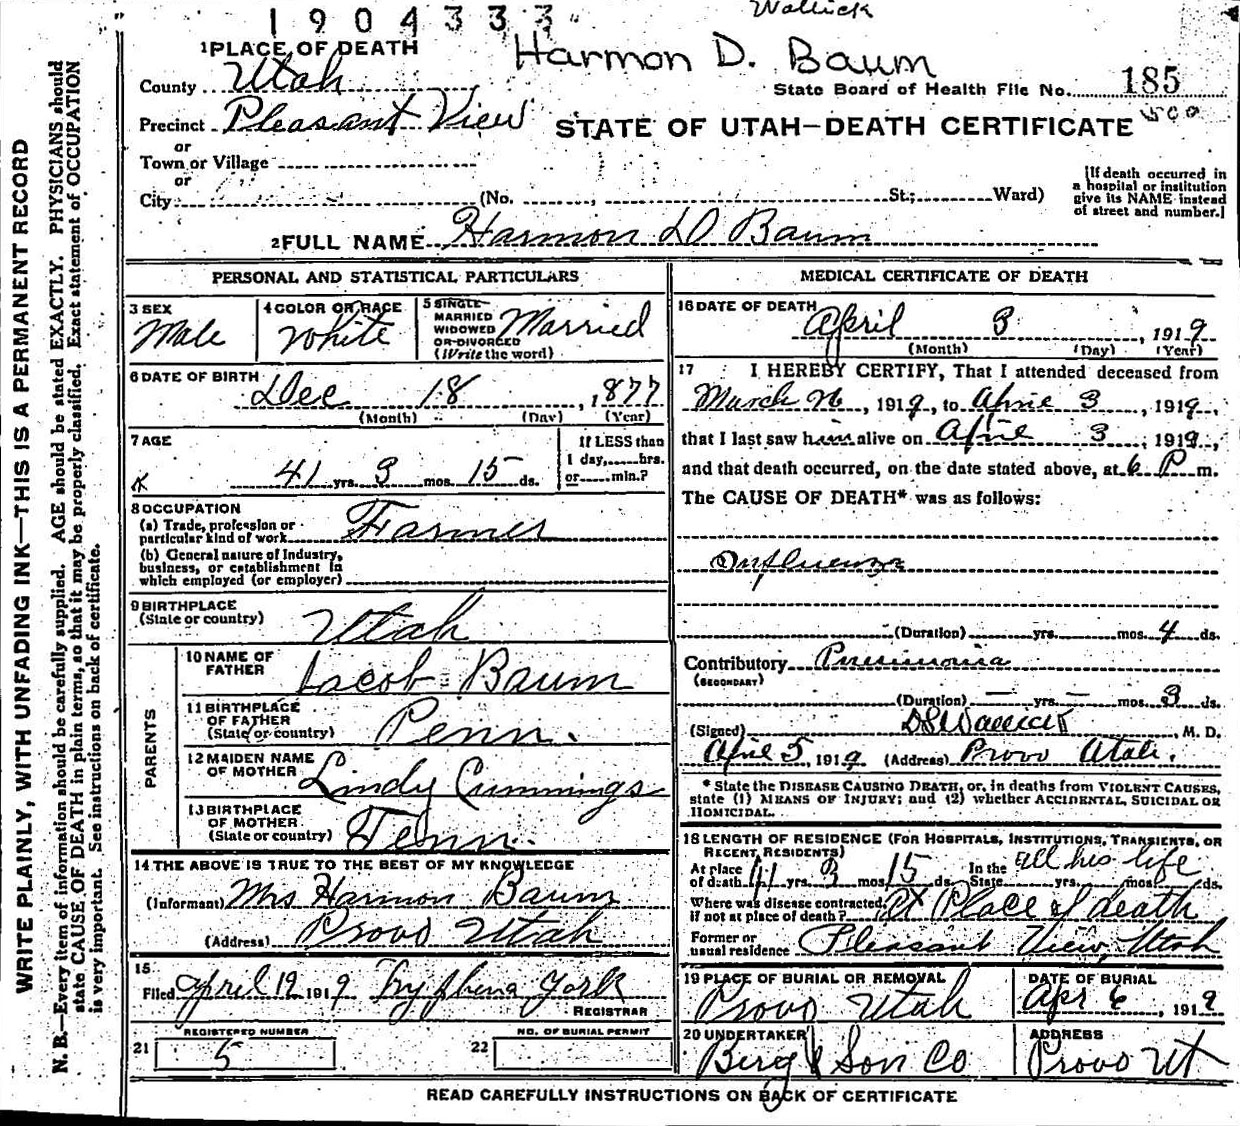 1904333
Wallick
Harmon D. Baum
1 PLACE OF DEATH
County Utah
State Board of Health File No. 185
Precinct Pleasant View
STATE OF UTAH—DEATH CERTIFICATE
or
Town or Village
or
City (No. , St.; Ward)
[If death occurred in
a hospital or institution
give its NAME instead
of street and number.]
2 FULL NAME Harmon D Baum
PERSONAL AND STATISTICAL PARTICULARS
3 SEX
Male
4 COLOR OR RACE
White
5 SINGLE
MARRIED
WIDOWED
OR DIVORCED
(Write the word)
Married
6 DATE OF BIRTH
Dec 18, 1877
(Month) (Day) (Year)
7 AGE
41 yrs. 3 mos. 15 ds.
If LESS than
1 day, hrs.
or min.?
8 OCCUPATION
(a) Trade, profession or
particular kind of work Farmer
(b) General nature of Industry,
business, or establishment in
which employed (or employer)
9 BIRTHPLACE
(State or country) Utah
PARENTS
10 NAME OF
FATHER Jacob Baum
11 BIRTHPLACE
OF FATHER
(State or country) Penn.
12 MAIDEN NAME
OF MOTHER Lindy Cummings
13 BIRTHPLACE
OF MOTHER
(State or country) Tenn.
14 THE ABOVE IS TRUE TO THE BEST OF MY KNOWLEDGE
(Informant) Mrs Harmon Baum
(Address) Provo Utah
15
Filed April 12 1919 Tryphena York
REGISTRAR
REGISTERED NUMBER
21 5
NO. OF BURIAL PERMIT
22
MEDICAL CERTIFICATE OF DEATH
16 DATE OF DEATH
April 3, 1919
(Month) (Day) (Year)
17 I HEREBY CERTIFY, That I attended deceased from
March 26, 1919, to April 3, 1919,
that I last saw him alive on April 3, 1919,
and that death occurred, on the date stated above, at 6 P m.
The CAUSE OF DEATH* was as follows:
Influenza
(Duration) yrs. mos. 4 ds.
Contributory Pneumonia
(SECONDARY)
(Duration) — yrs. — mos. 3 ds.
(Signed) , M. D.
April 5, 1919 (Address) Provo Utah.
* State the DISEASE CAUSING DEATH, or, in deaths from VIOLENT CAUSES,
state (1) MEANS OF INJURY; and (2) whether ACCIDENTAL, SUICIDAL OR
HOMICIDAL.
18 LENGTH OF RESIDENCE (FOR HOSPITALS, INSTITUTIONS, TRANSIENTS, OR
RECENT RESIDENTS)
At place
of death 41 yrs. 3 mos. 15 ds. In the
State all his life yrs. mos. ds.
Where was disease contracted,
if not at place of death? At Place of death
Former or
usual residence Pleasant View, Utah
19 PLACE OF BURIAL OR REMOVAL
Provo Utah
DATE OF BURIAL
Apr 6, 1919
20 UNDERTAKER
Berg & Son Co
ADDRESS
Provo Ut
READ CAREFULLY INSTRUCTIONS ON BACK OF CERTIFICATE
WRITE PLAINLY, WITH UNFADING INK—THIS IS A PERMANENT RECORD
N. B.—Every item of information should be carefully supplied. AGE should be stated EXACTLY. PHYSICIANS should
state CAUSE OF DEATH in plain terms, so that it may be properly classified. Exact statement of OCCUPATION
is very important. See instructions on back of certificate.